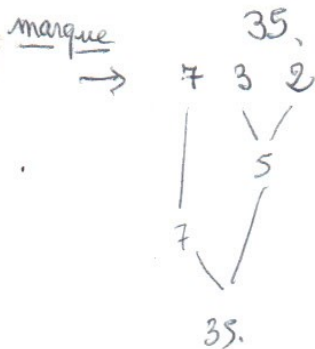 marque
35.
→ 7 3 2
5
7
35.